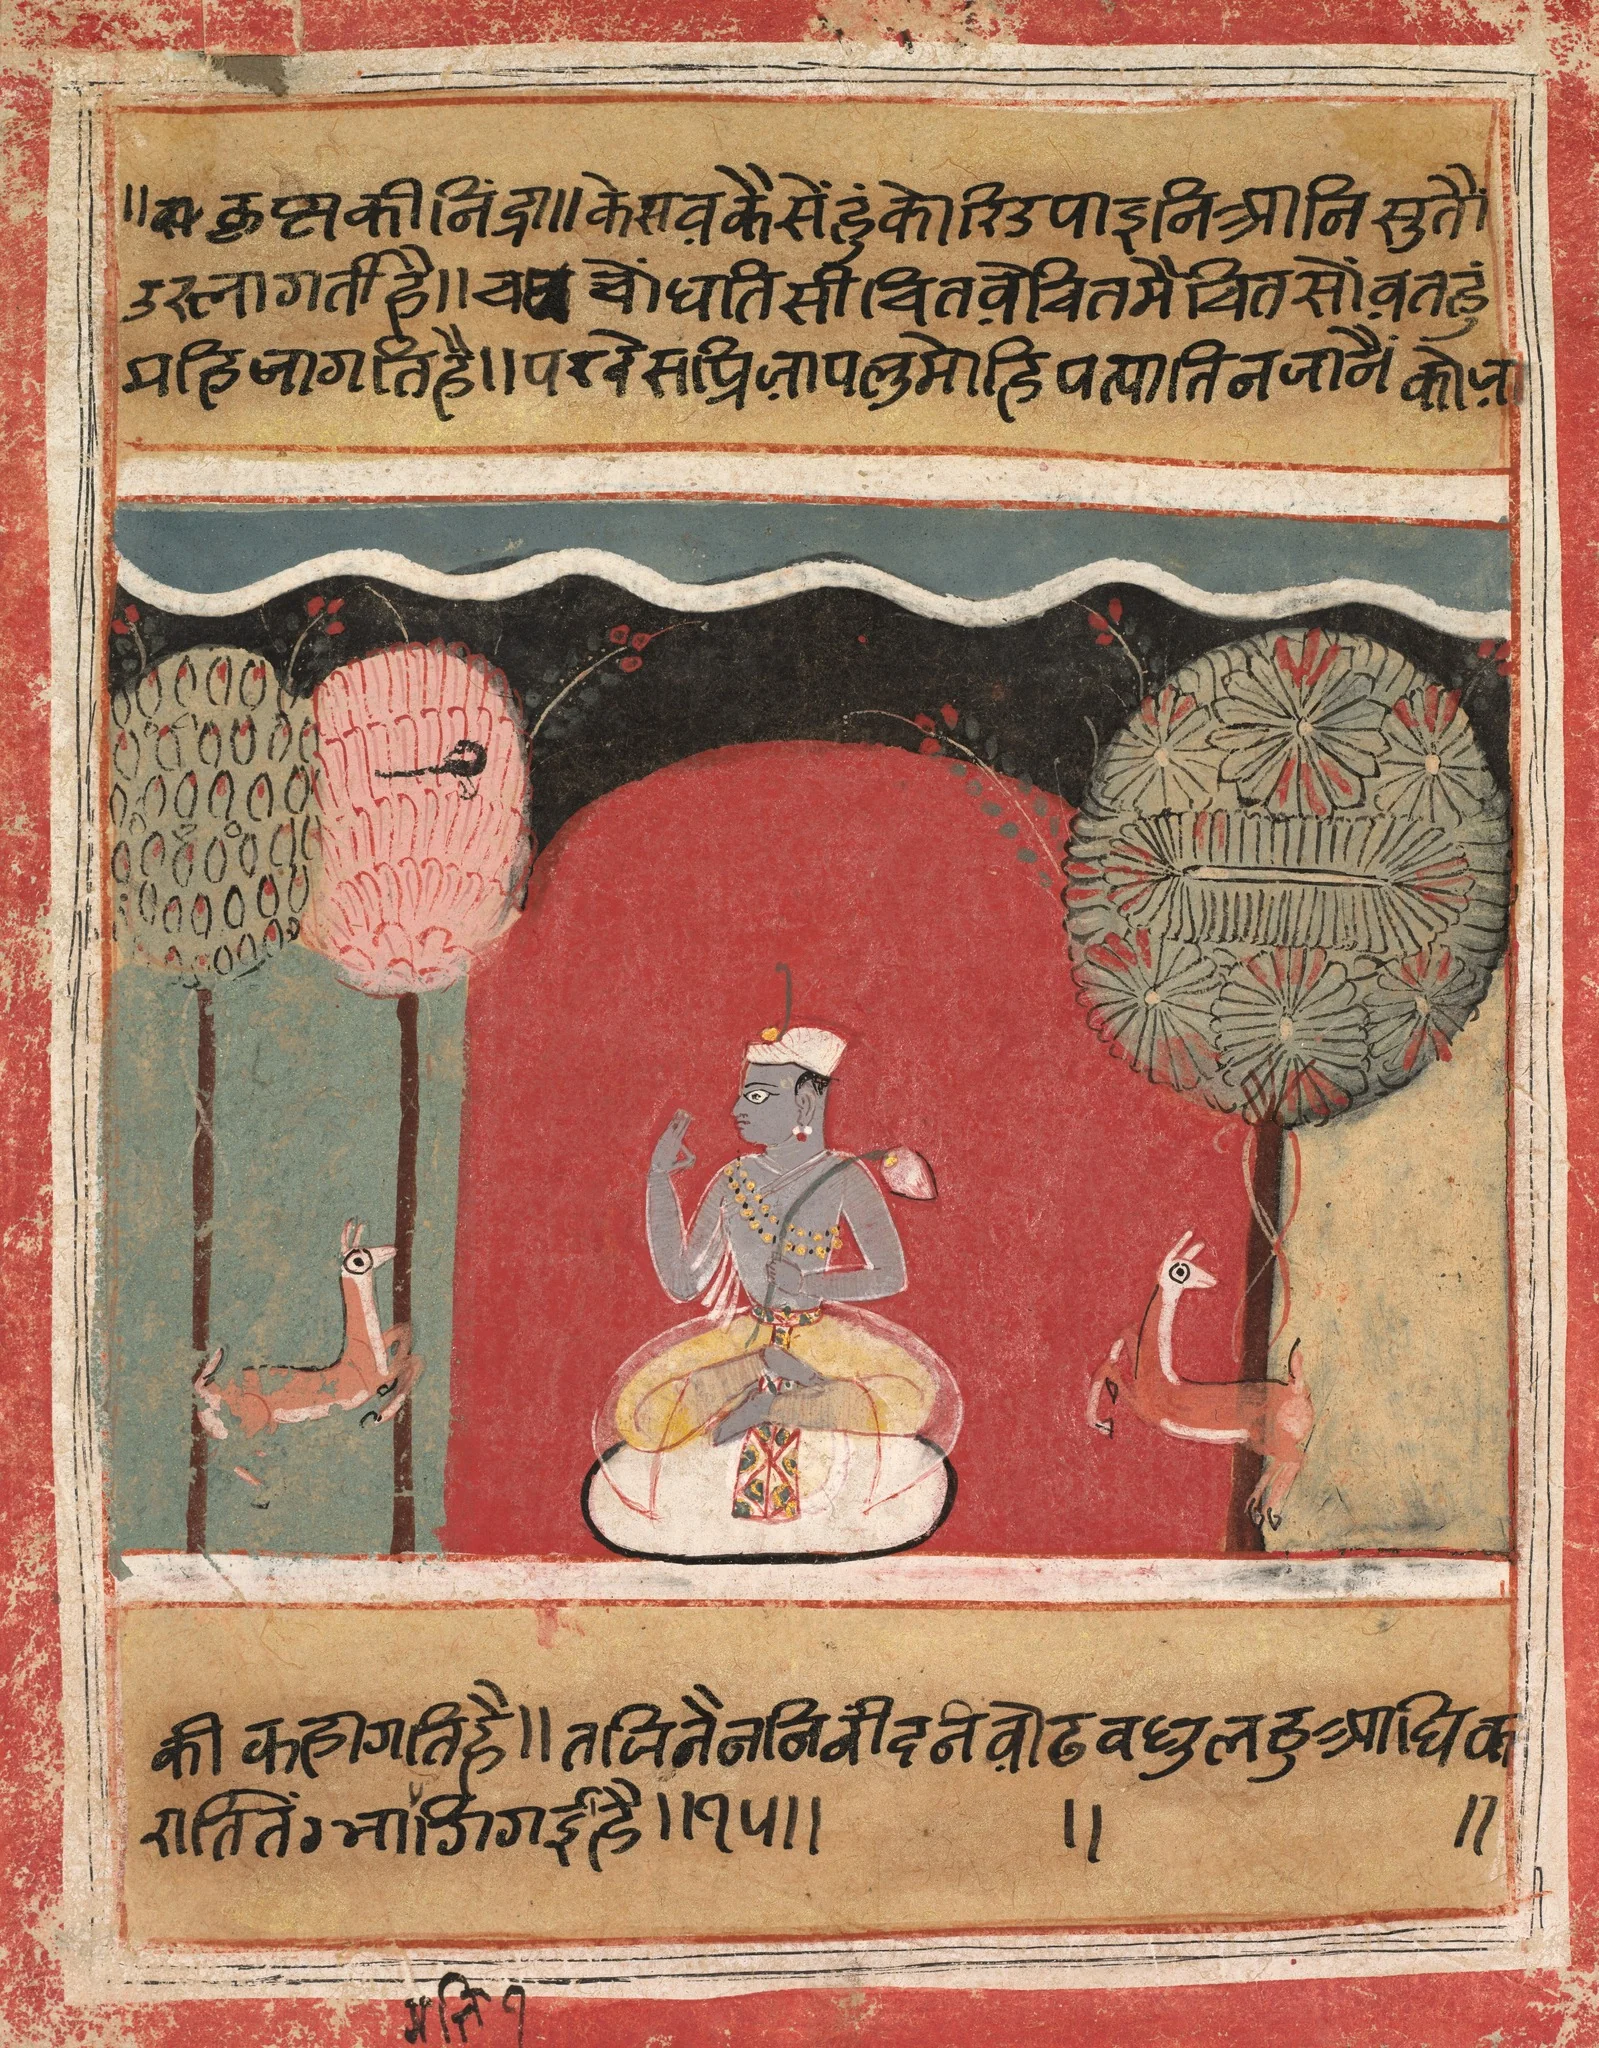 ॥ कृष्नकी निंद्रा॥ केसव कैसेंहुं कोरि उपाइनि आनि सुतौं
उर लागर्ती है॥ च चौंधाति सी चितवै चित मै चित सौंवत हुं
महि जागति है॥ परदेस प्रिजा पलु मोहि पत्याति न जानै को जा
की कहा गति है॥ तजि नैननि नींद नवोढ वधु लहु आधिक
राति तें भाजि गई है॥१५॥ ॥ ॥